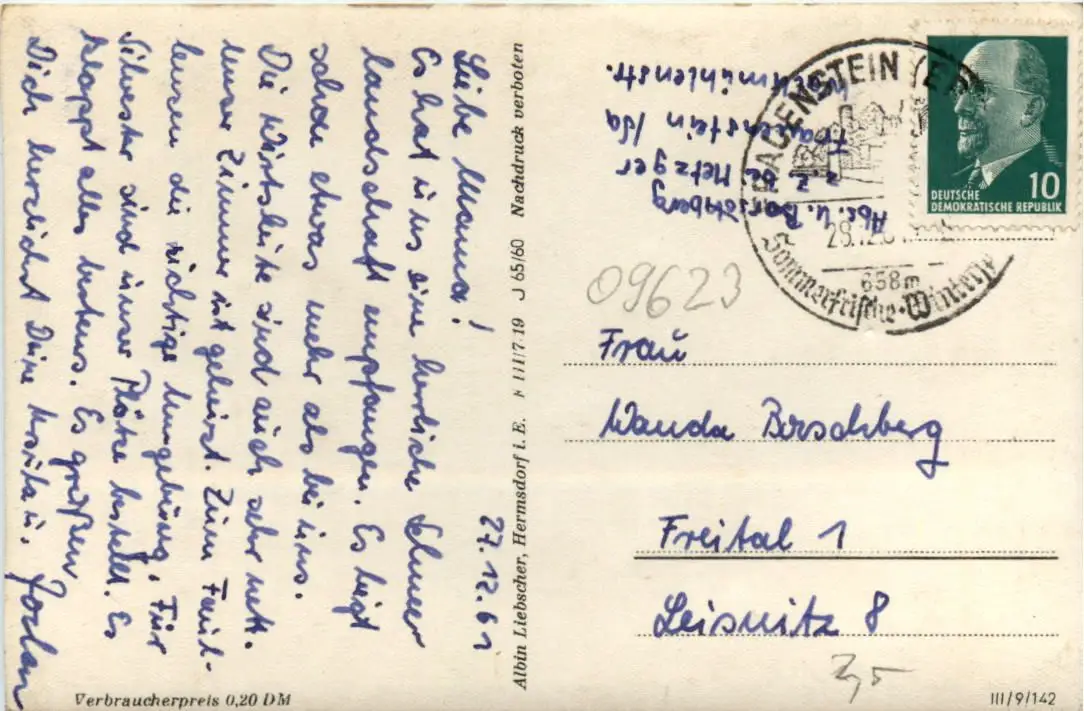 27.12.61
Liebe Mama!
Es hat uns eine herrliche Schnee
landschaft empfangen. Es liegt
schon etwas mehr als bei uns.
Die Wirtsleute sind auch sehr nett.
Unser Zimmer ist geheizt. Zum Faul-
lenzen die richtige Umgebung. Für
Silvester sind unsre Plätze bestellt. Es
klappt alles bestens. Es grüßen
Dich herzlichst Deine u.
Verbraucherpreis 0,20 DM
Albin Liebscher, Hermsdorf i. E. III/7/19 J 65/60 Nachdruck verboten
Abs. U. Borschberg
z. Z. b. Metzger
Frauenstein /Sa
mühlenstr.
FRAUENSTEIN
28.12.61
658m
Sommerfrische · Winter
DEUTSCHE
DEMOKRATISCHE REPUBLIK
10
09623
Frau
Wanda Borschberg
Freital 1
Leisnitz 8
III/9/142